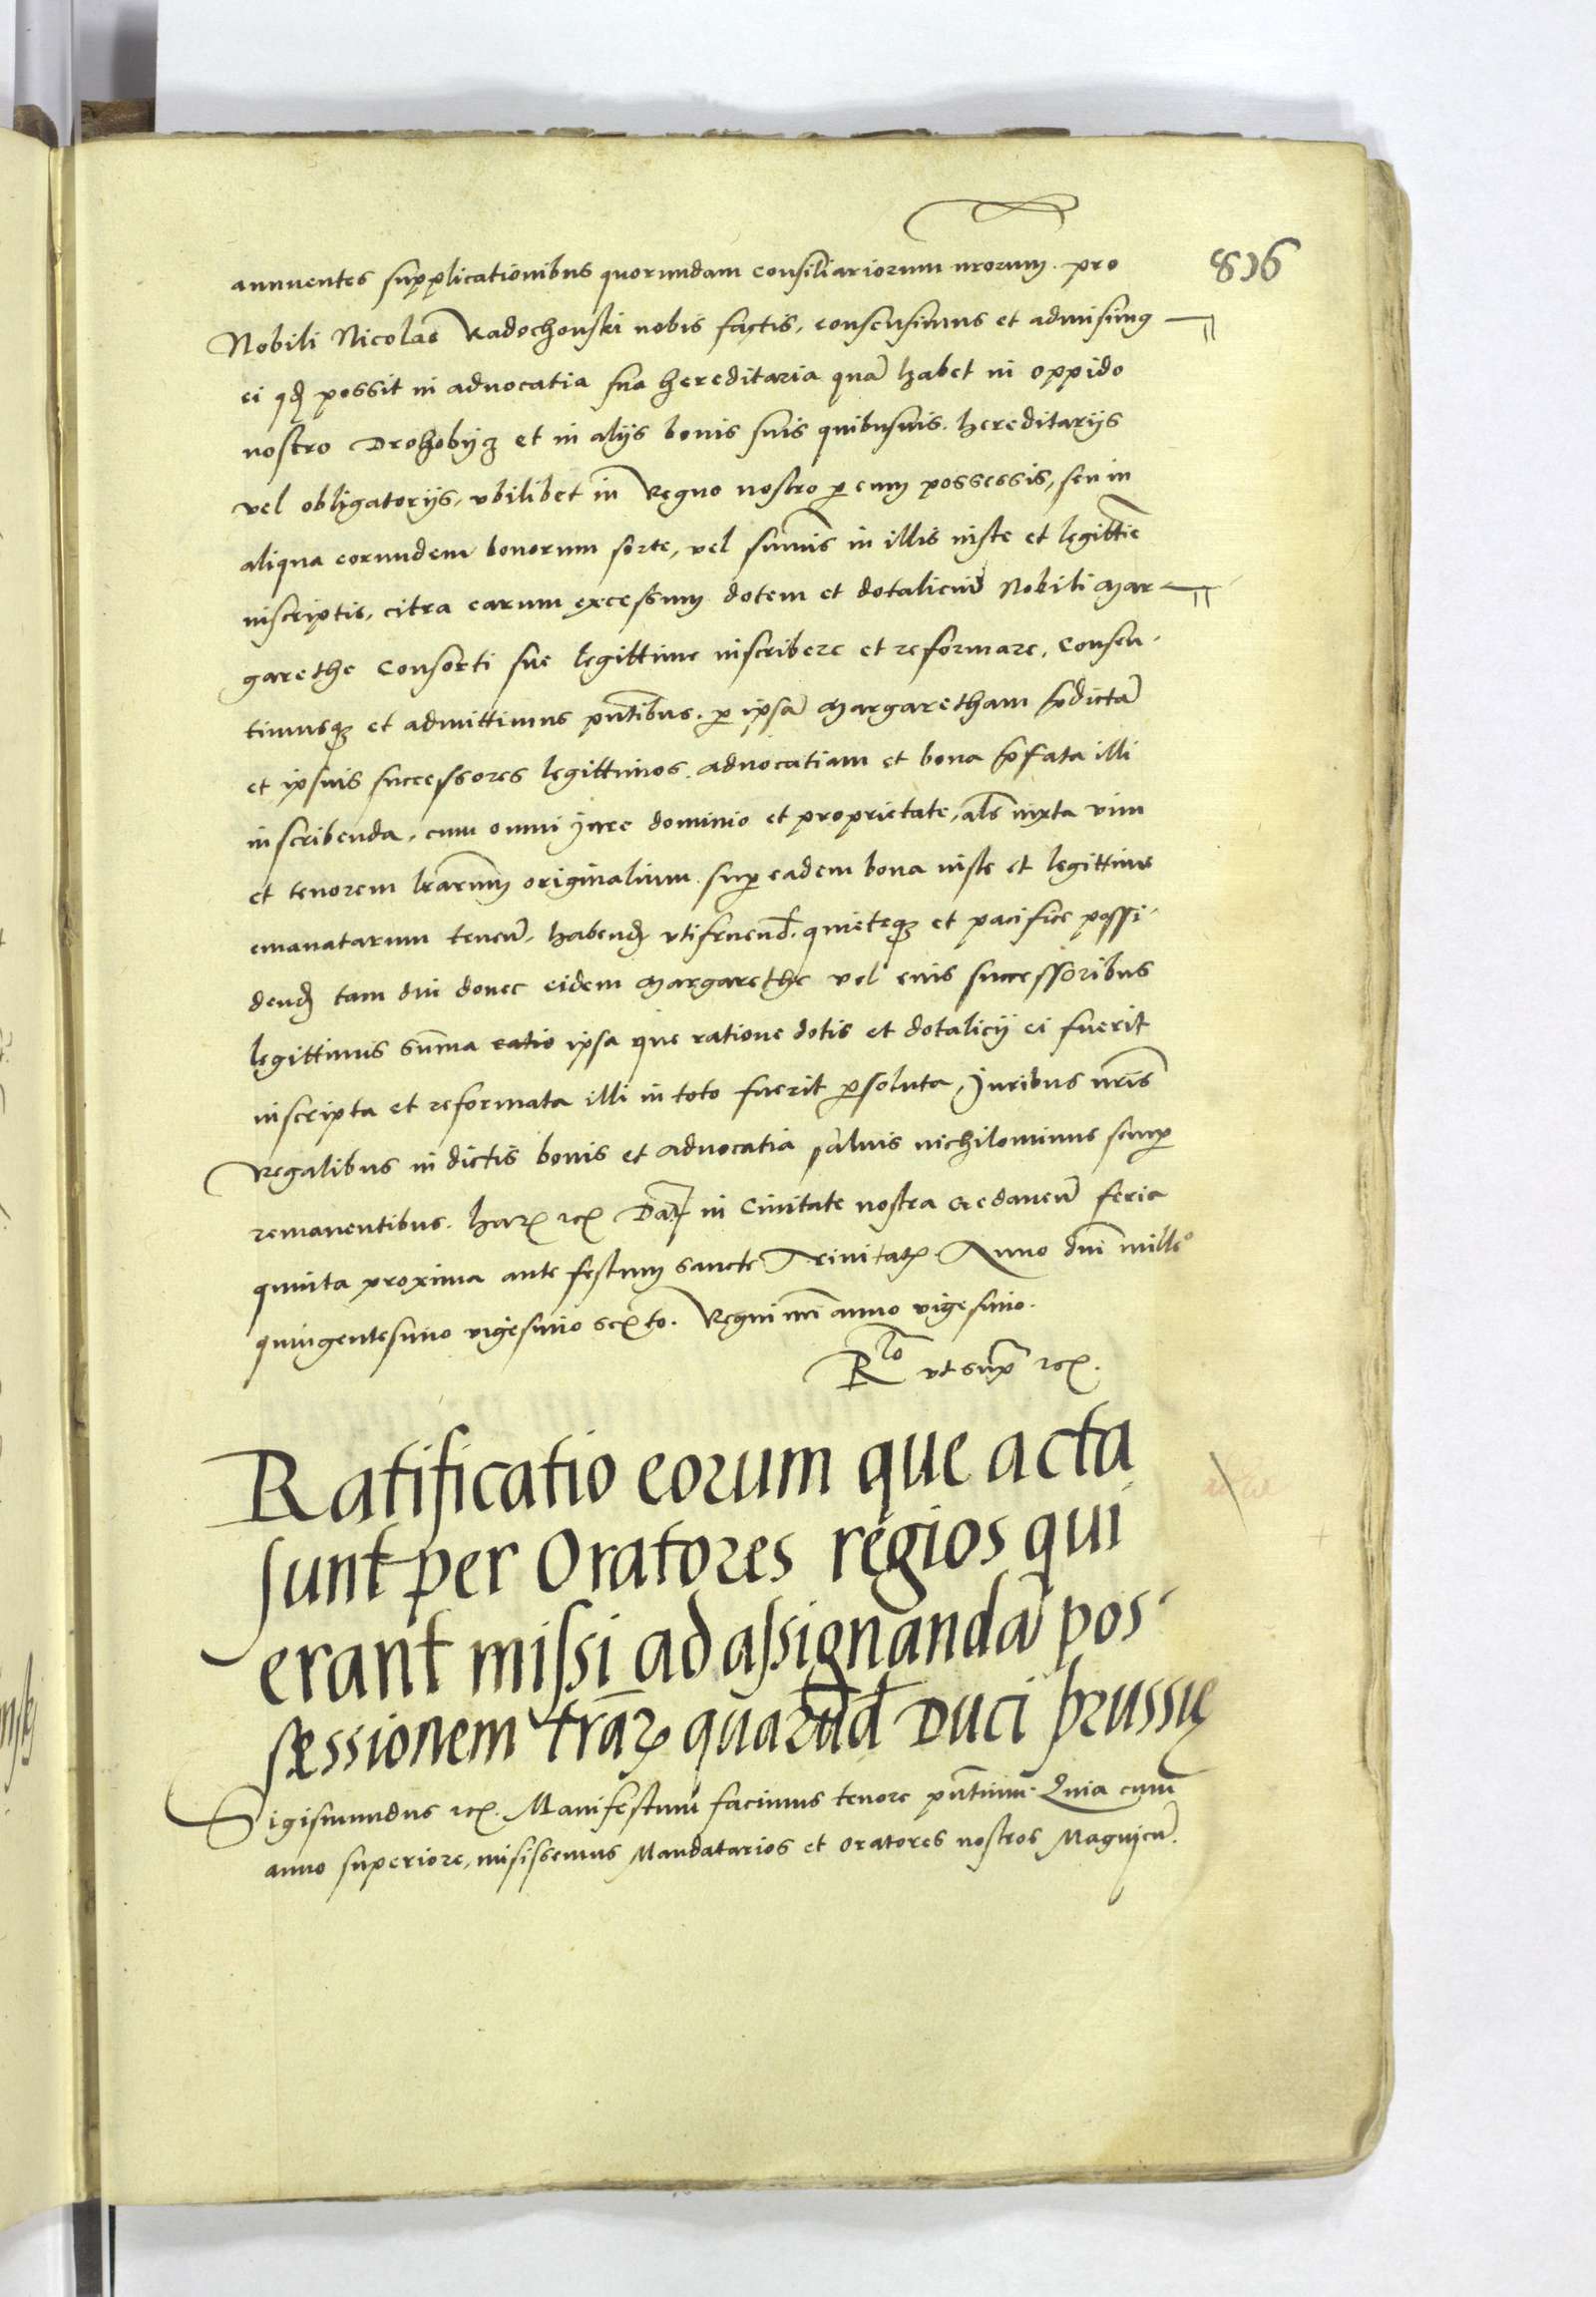 annuentes supplicationibus quorundam consiliariorum nrorum. pro
806
Nobili Nicolao Radochonski nobis factis, consensimus et admisimus
ei qd possit in aduocatia sua hereditaria quã habet in oppido
nostro Drohobycz et in alijs bonis suis quibusuis. hereditarijs
vel obligatorijs, vbilibet in Regno nostro p eum possessis, seu in
aliqua eorundem bonorum sorte, vel sum̃is in illis iuste et legittĩe
inscriptis, citra earum excessum dotem et dotaliciũ Nobili Mar
garethe Consorti sue legittime inscribere et reformare, Consen-
timusqz et admittimus pñtibus. p ipsã Margaretham p̃dictã
et ipsius successores legittimos. aduocatiam et bona p̃fata illi
inscribenda, cum omni iure dominio et proprietate, als iuxta vim
et tenorem lrarum originalium sup eadem bona iuste et legittime
emanatarum teneñ. habend vtifruend. quieteqz et pacifice possi-
dend tam diu donec eidem Margarethe vel eius successoribus
legittimis sum̃a ratio ipsa que ratione dotis et dotalicij ei fuerit
inscripta et reformata illi in toto fuerit psoluta, Iuribus nris
Regalibus in dictis bonis et aduocatia saluis nichilominus semp
remanentibus. Harz rcz Dat in Ciuitate nostra Gedaneñ feria
quinta proxima ante festum sancte Trinitatz Anno dni millo
quingentesimo vigesimo sexto. Regni nri anno vigesimo.
Rlo vt supra rcz.
Ratificatio eorum que acta
sunt per Oratores regios qui
erant missi ad assignandã pos-
sessionem trãrz quarũd Duci prussię
Sigismundus rcz. Manifestum facimus tenore pñtium. Quia cum
anno superiore, misissemus Mandatarios et Oratores nostros Magnicũ.